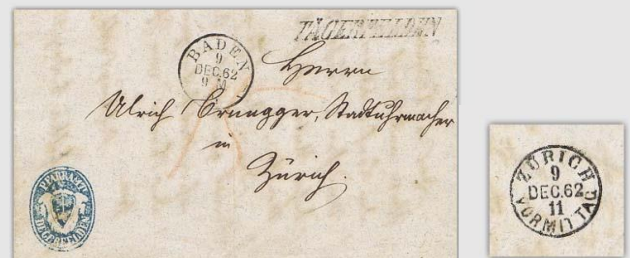 TÄGERFELDEN
BADEN
9
DEC.62
9 M
Herrn
Ulrich Brungger, Stadtuhrmacher
in
Zürich.
PFARRAMT
DEGERFELDEN
ZÜRICH
9
DEC.62
11
VORMITTAG